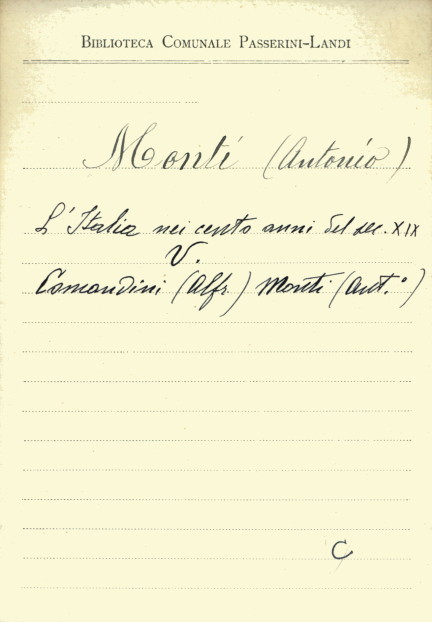 BIBLIOTECA COMUNALE PASSERINI-LANDI
Monti (Antonio)
L'Italia nei cento anni del sec. XIX
V.
Comandini (Alfr.) Monti (Ant.°)
C